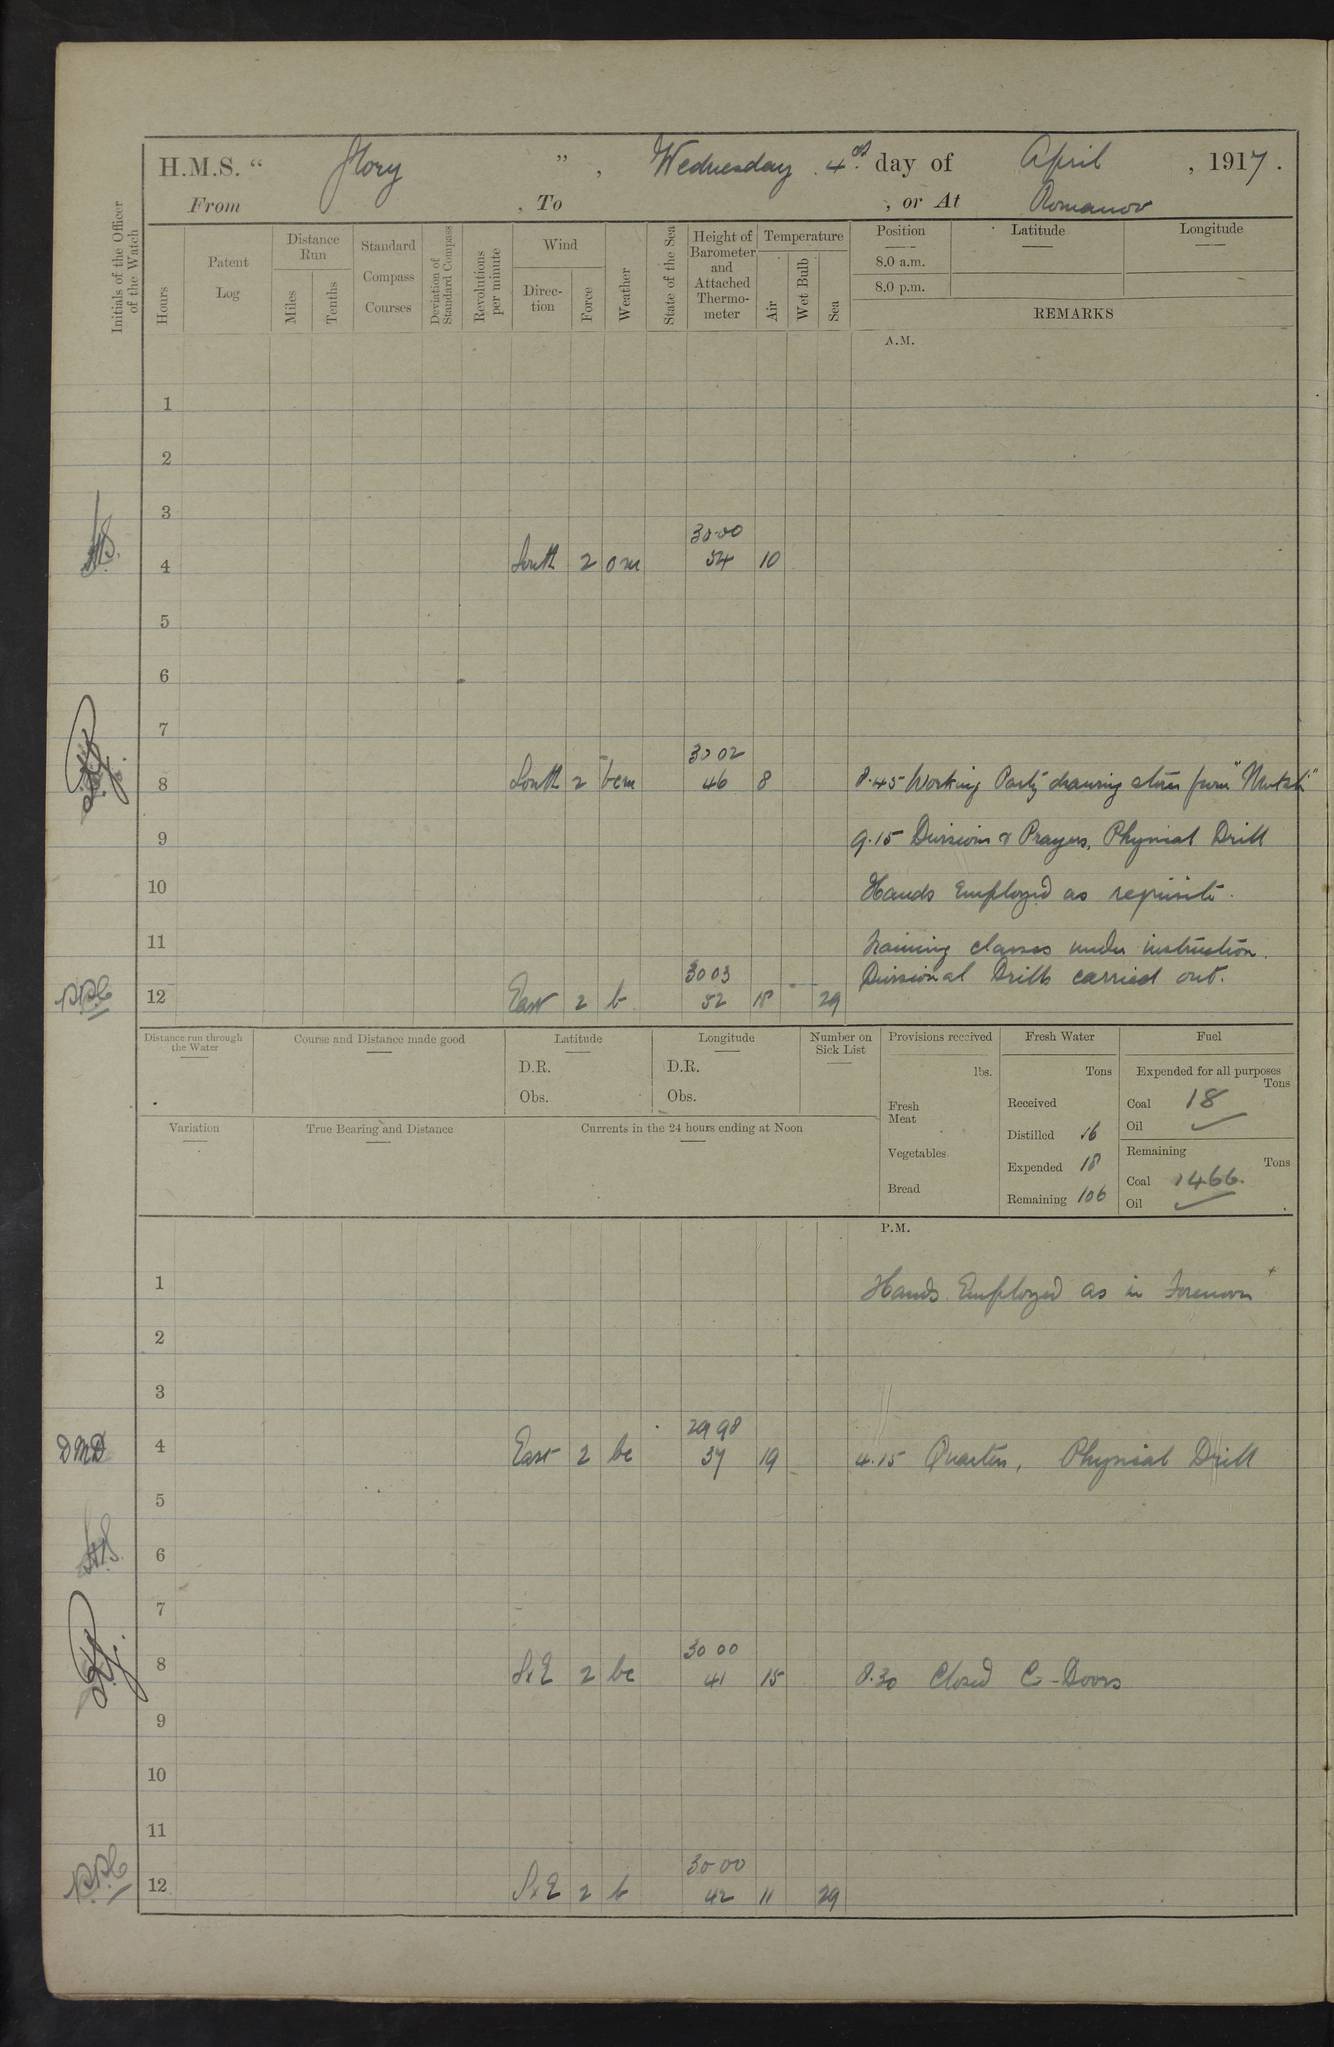 H.M.S. “ Glory ” , Wednesday 4th day of April , 1917.
From , To , or At Romanov
Initials of the Officer of the Watch
Hours
Patent Log
Distance Run
Miles
Tenths
Standard Compass Courses
Deviation of Standard Compass
Revolutions per minute
Wind
Direction
Force
Weather
State of the Sea
Height of Barometer and Attached Thermometer
Temperature
Air
Wet Bulb
Sea
Position
8.0 a.m.
8.0 p.m.
Latitude
Longitude
REMARKS
A.M.
1
2
3
30·00
4 South 2 om 54 10
5
6
7
30 02
8 South 2 bcm 46 8 8.45 Working Party drawing stores from
9 9.15 Divisions & Prayers, Physical Drill
10 Hands Employed as requisite.
11 Training classes under instruction.
30 03 Divisional Drills carried out.
12 East 2 b 52 18 29
Distance run through the Water
Course and Distance made good
Latitude
D.R.
Obs.
Longitude
D.R.
Obs.
Number on Sick List
Provisions received
lbs.
Fresh Meat
Vegetables
Bread
Fresh Water
Tons
Received
Distilled 16
Expended 18
Remaining 106
Fuel
Expended for all purposes
Tons
Coal 18
Oil
Remaining
Tons
Coal 1466.
Oil
Variation
True Bearing and Distance
Currents in the 24 hours ending at Noon
P.M.
1 Hands Employed as in Forenoon
2
3
29 98
DMD 4 East 2 bc 37 19 4.15 Quarters, Physical Drill
5
6
7
30 00
8 SxE 2 bc 41 15 8.30 Closed C-Doors
9
10
11
30 00
12 SxE 2 b 42 11 29